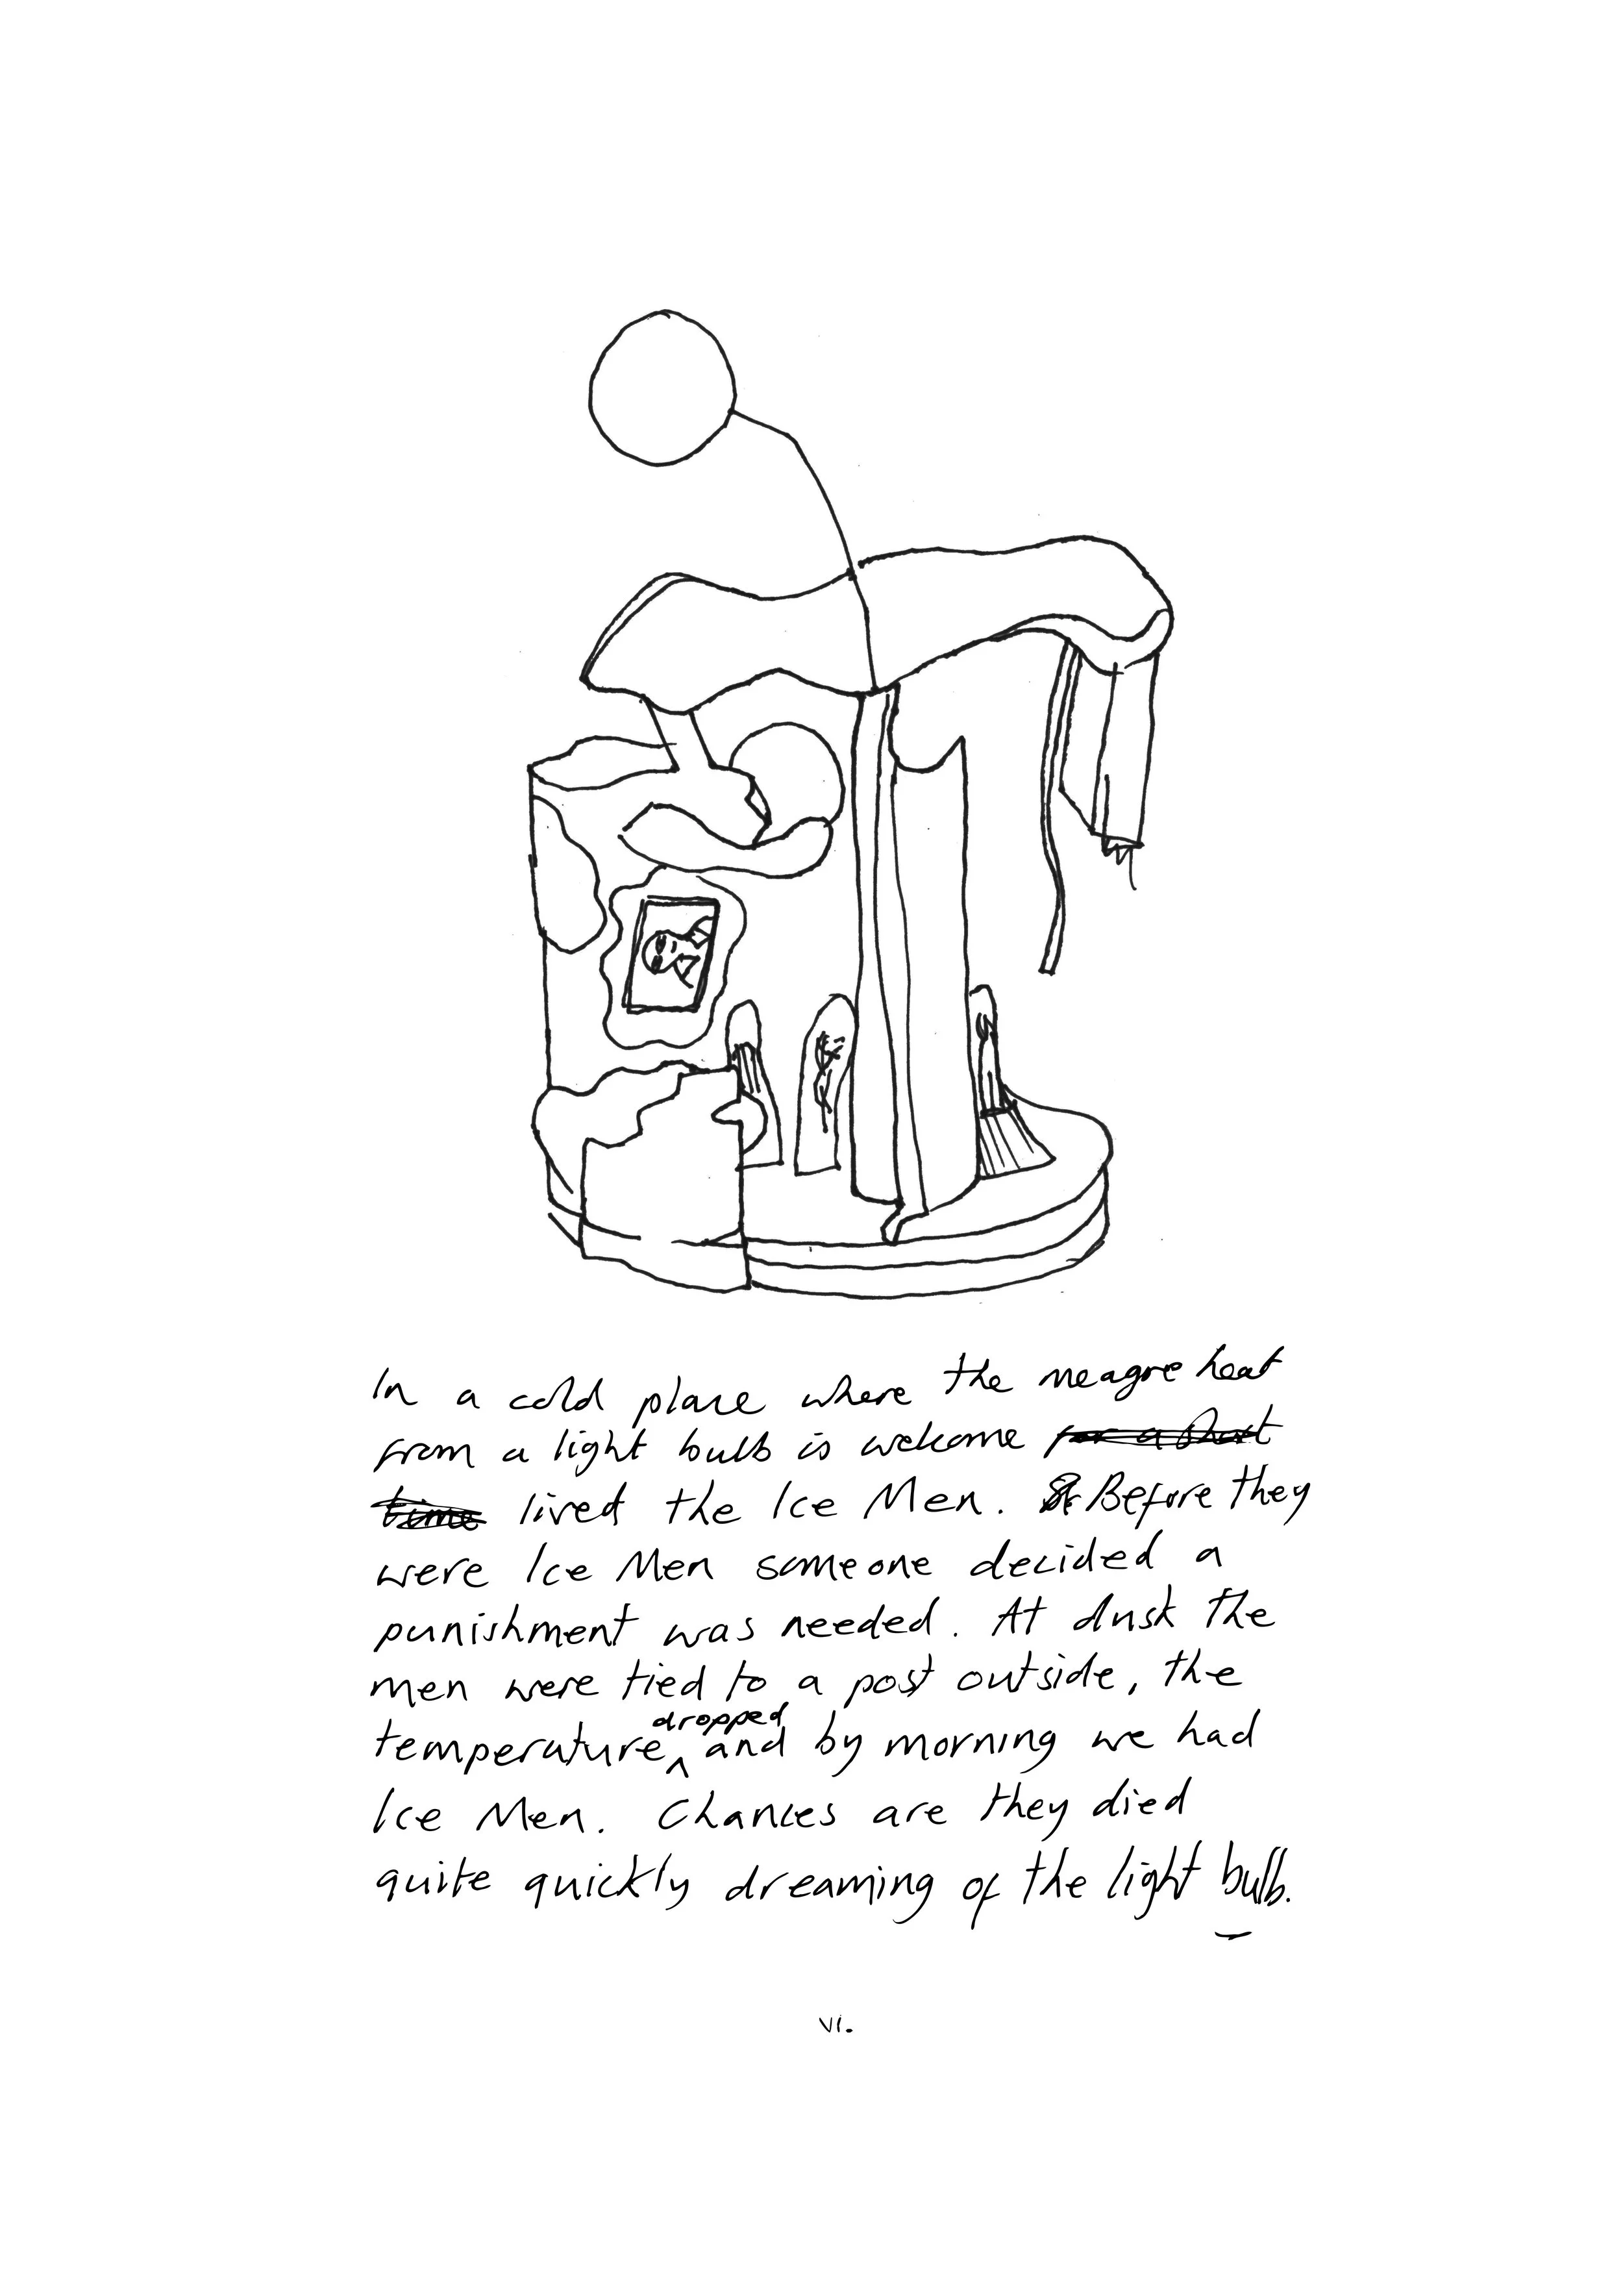 In a cold place where the meagre heat
from a light bulb is welcome for a short
time lived the Ice Men. Before they
were Ice Men someone decided a
punishment was needed. At dusk the
men were tied to a post outside, the
dropped
temperature ^ and by morning we had
Ice Men. Chances are they died
quite quickly dreaming of the light bulb.
vi.